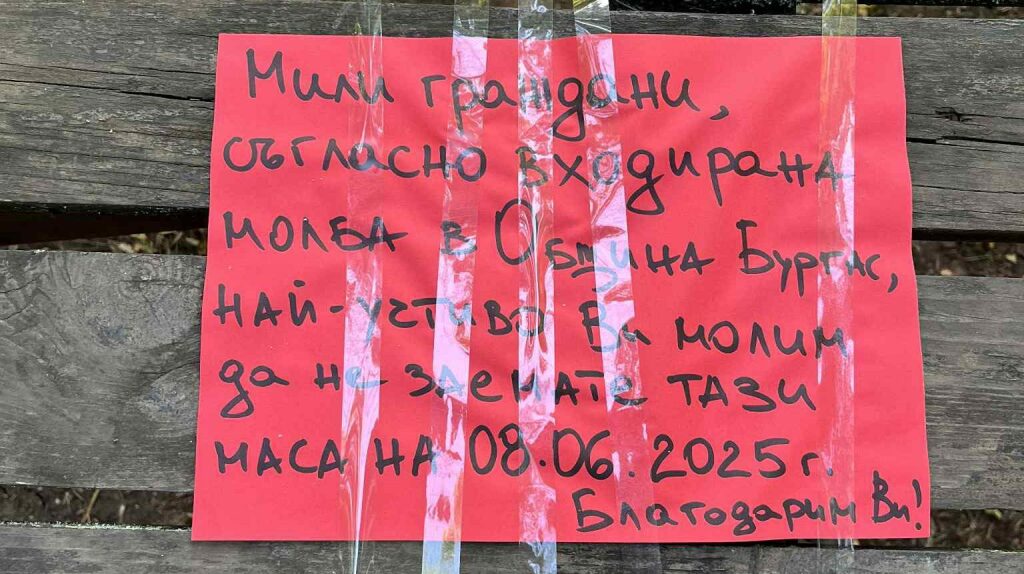 Мили граждани,
съгласно входирана
молба в Община Бургас,
най-учтиво Ви молим
да не заемате тази
маса на 08.06.2025 г.
Благодарим Ви!